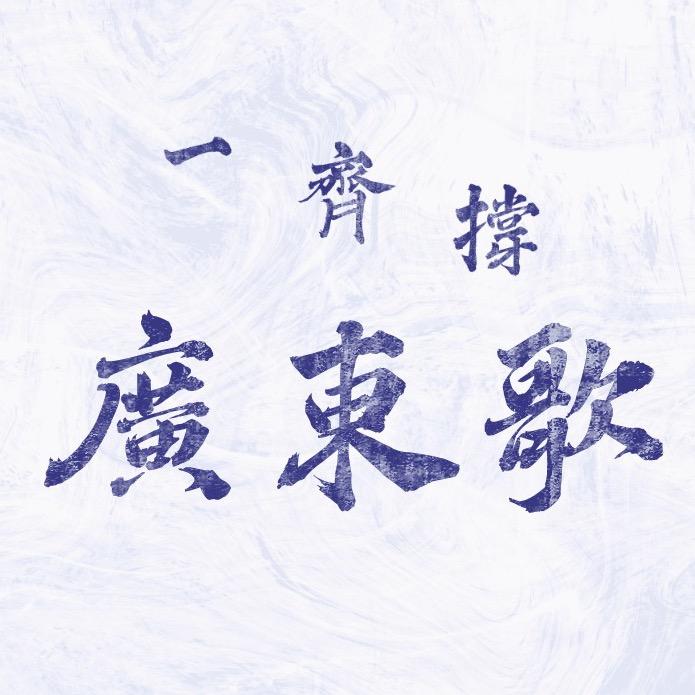 一齊撐
廣東歌